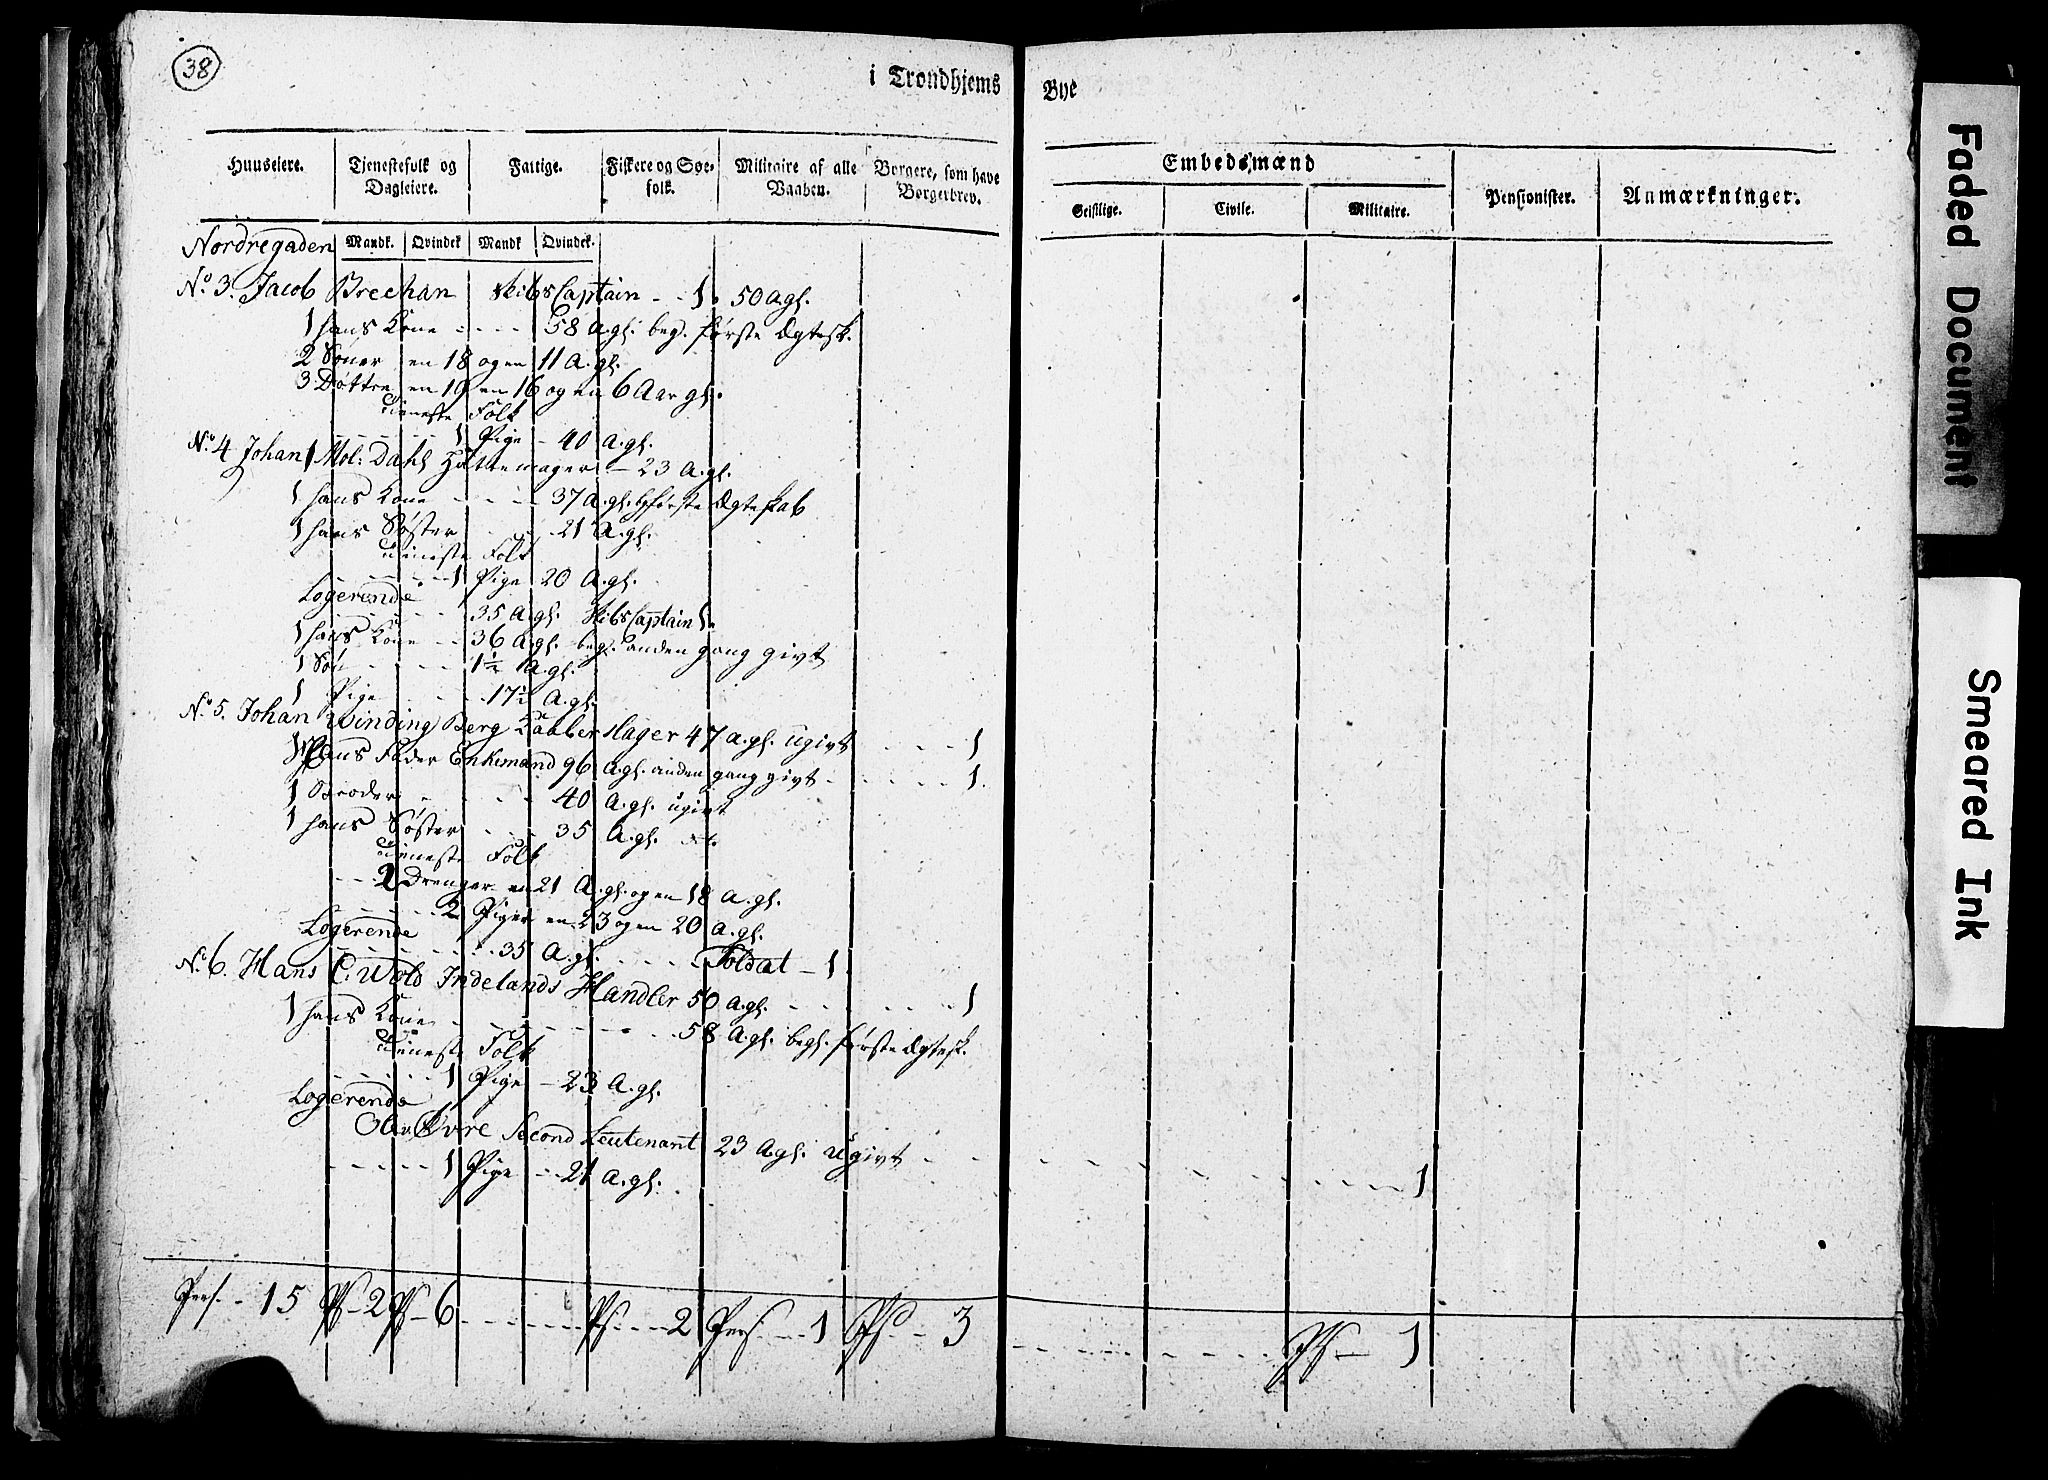 38
i Trondhjems Bye
Huuseiere. Tjenestefolk og Dagleiere. Fattige. Fiskere og Søe-folk. Militaire af alle Vaaben. Borgere, som have Borgerbrev.
Embedsmænd Pensionister. Anmærkninger.
Geistlige. Civile. Militaire.
Nordregaden Mandk. Qvindek Mandk Qvindek.
No. 3. Jacob Brechan Skibs Captain - - 1. 50 A.gl.
1 hans Kone - - - - 58 A.gl. beg. første Ægtesk.
2 Sønner en 18 og en 11 A.gl.
3 Døttre en 19 en 16 og en 6 Aar gl.
Tieneste Folk
- - - - - 1 Pige - 40 A.gl.
No. 4 Johan Mol: Dahl Hattemager - 23 A.gl.
1 hans Kone - - - - 37 A.gl. b første Ægteskab
1 hans Søster - - - 21 A.gl.
Tieneste Folk
- - - - - 1 Pige 20 A.gl.
Logerende
- - - - - 35 A.gl. Skibs Captain 1.
1 hans Kone - - 36 A.gl. beg. anden gang givt
1 Søn - - - - 1½ A.gl.
1 Pige - - 17½ A.gl.
No. 5. Johan Winding Berg Kabberslager 47 A.gl. ugivt - - - 1
1 Hans Fader Enkemand 96 A.gl. anden gang givt - - - - - 1.
1 Broder - - - - 40 A.gl. ugivt
1 hans Søster - - - 35 A.gl.
Tieneste Folk
- - 2 Drenger en 21 A.gl. og en 18 A.gl.
- - - - 2 Piger en 23 og en 20 A.gl.
Logerende
- - - - - 35 A.gl. - - - - Soldat - 1
No. 6. Hans C. Wold Indelands Handler 50 A.gl. - - - - - 1
1 hans Kone - - - - - - 58 A.gl. begl. første Ægtesk.
Tieneste Folk
- - - - - 1 Pige - 23 A.gl.
Logerende
Øvre Second Leutenant 23 A.gl. ugivt - - - - - - - - - - 1
- - - - - 1 Pige - - 21 A.gl.
Pers. - 15 Ps - 2 Ps - 6 - - - - - - Ps - - - 2 Pers. - - 1 Ps - 3 - - - - - - - Ps - 1
Faded Document
Smeared Ink